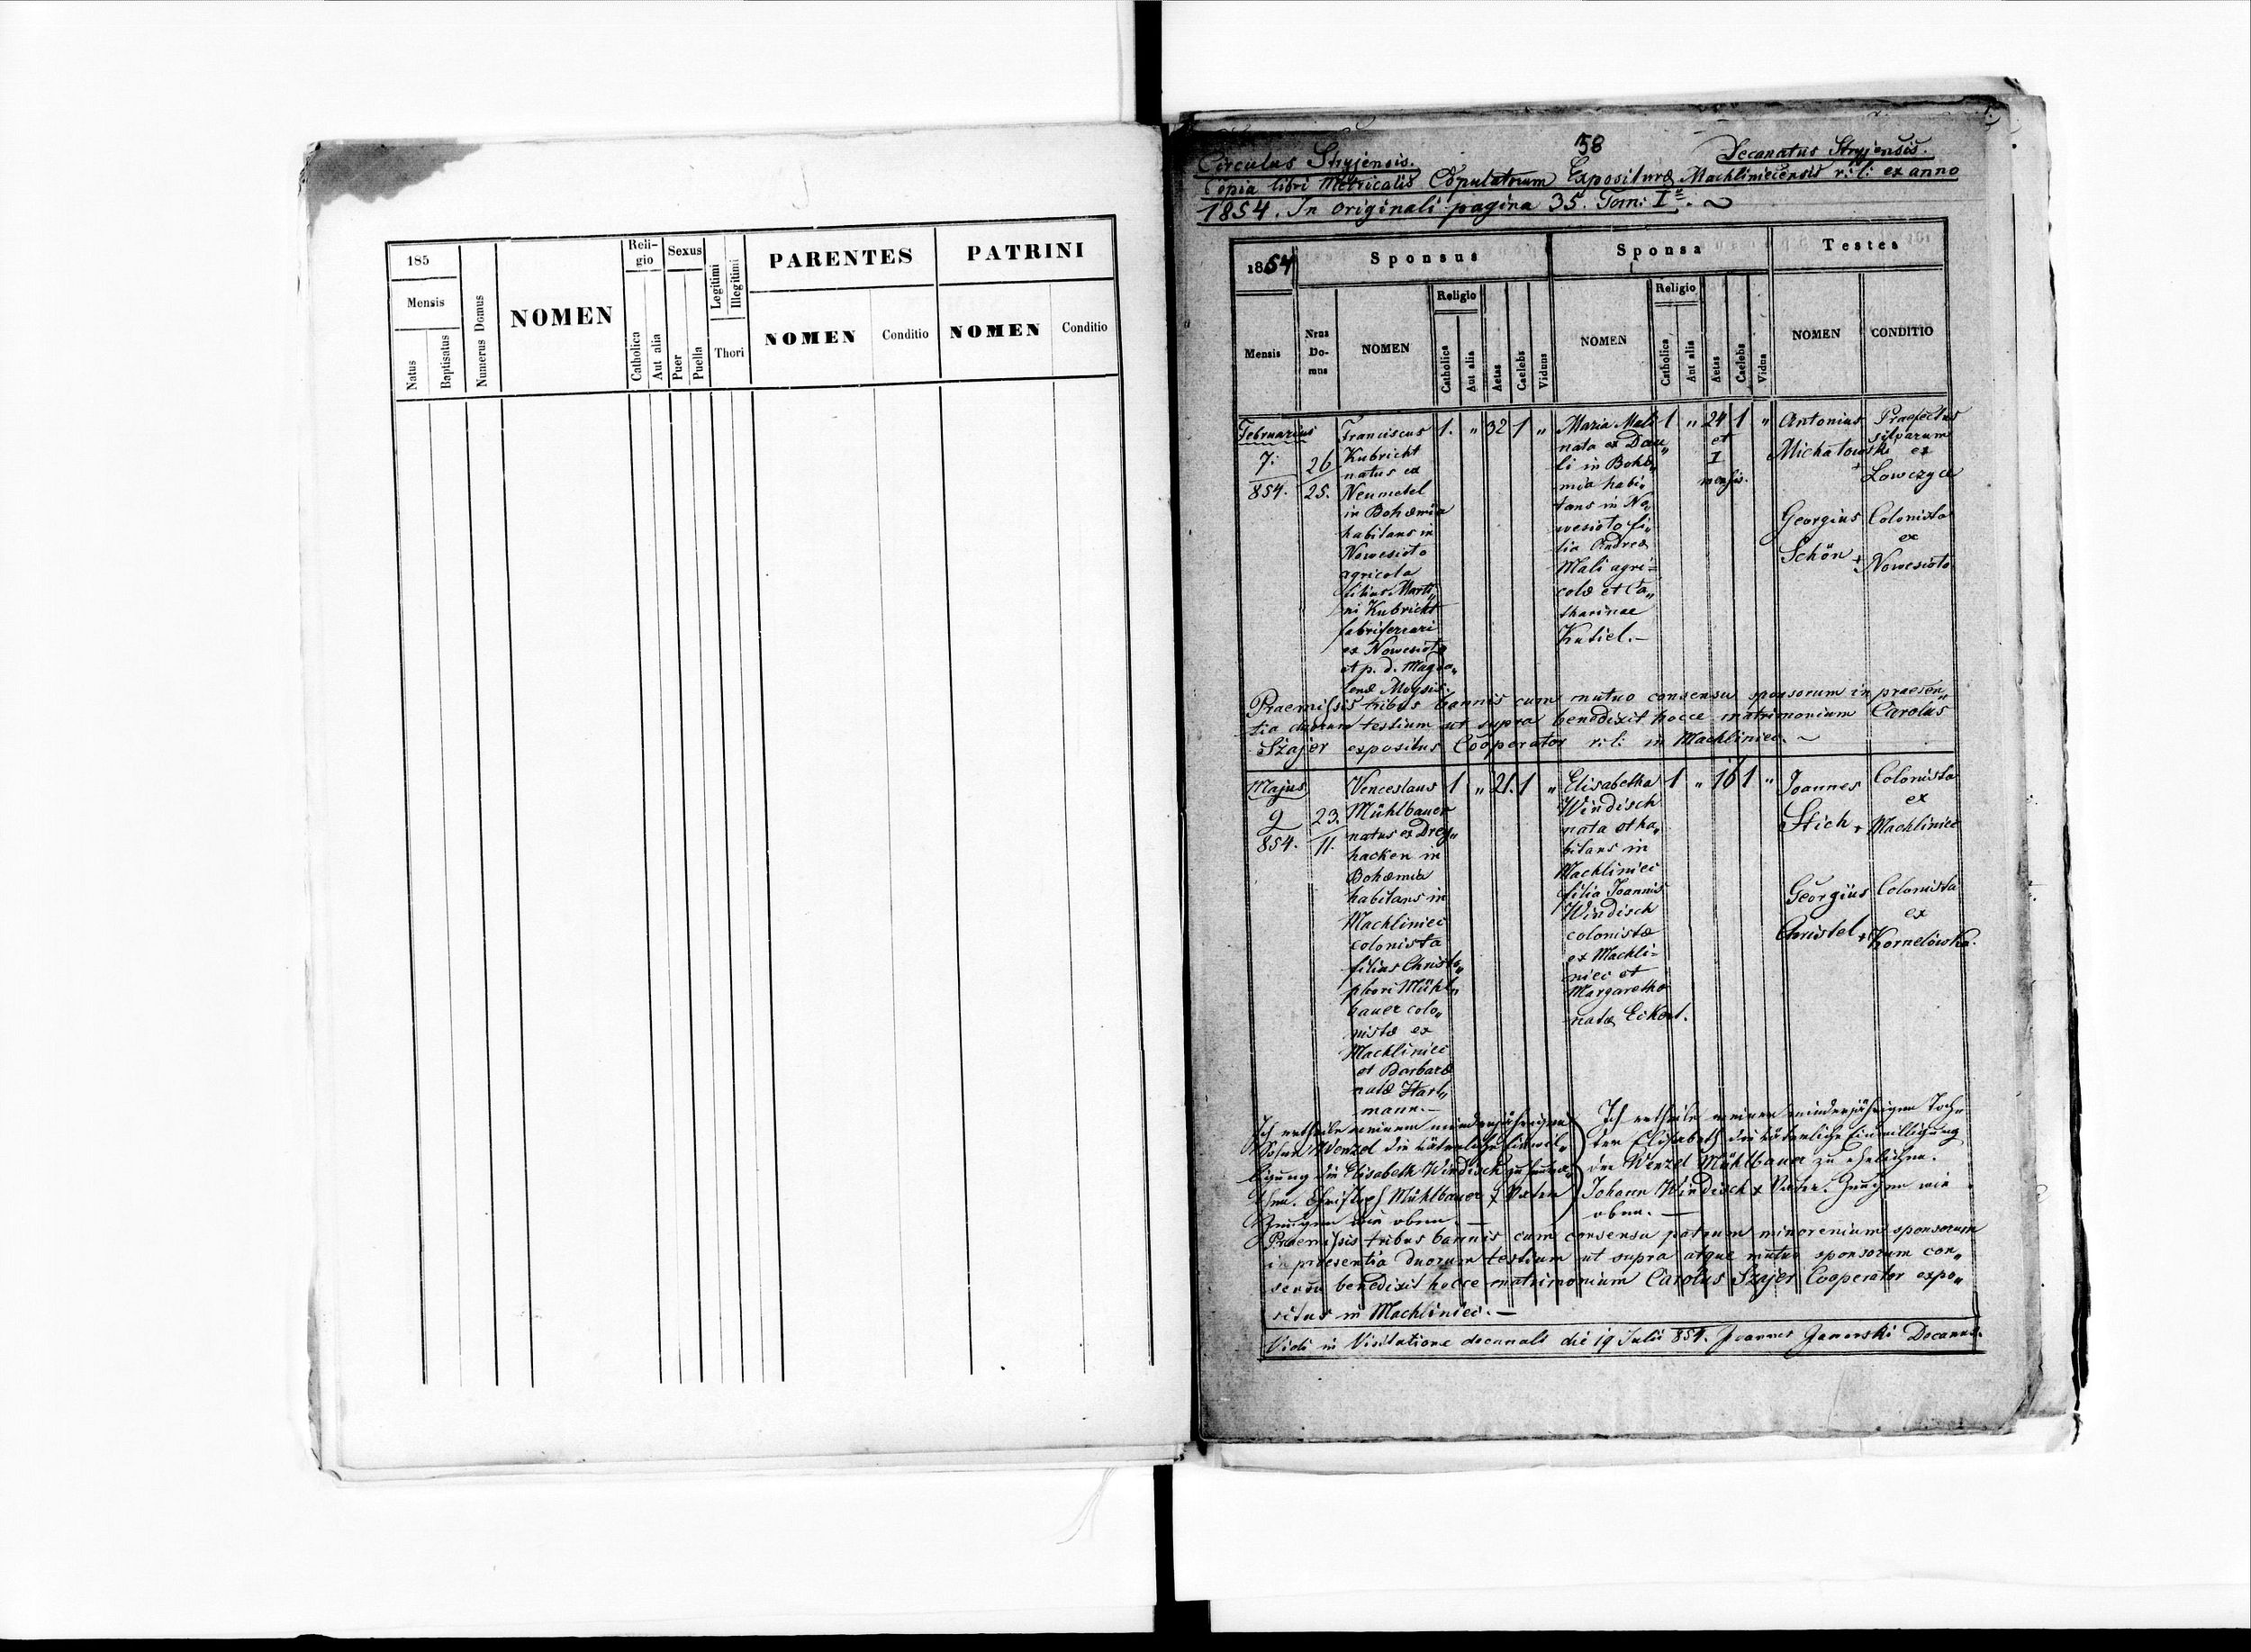 185
Mensis
Natus
Baptisatus
Numerus Domus
NOMEN
Reli-
gio
Catholica
Aut alia
Sexus
Puer
Puella
Legitimi
Illegitimi
Thori
PARENTES
NOMEN
Conditio
PATRINI
NOMEN
Conditio
58
Circulus Stryjensis.
Decanatus Stryjensis.
Copia libri Metricalis Copulatorum Expositurae Machliniecensis r: l: ex anno
1854. In originali pagina 35. Tom: I
1854
Sponsus
Sponsa
Testes
Mensis
Nrus
Do-
mus
NOMEN
Religio
Catholica
Aut alia
Aetas
Caelebs
Viduus
NOMEN
Religio
Catholica
Aut alia
Aetas
Caelebs
Vidua
NOMEN
CONDITIO
Februarius
7.
854.
26
25.
Franciscus
Kubricht
natus ex
Neumetel
in Bohæmia
habitans in
Nowesioło
agricola
filius Marti„
ni Kubricht
fabriferrari
ex Nowesioło
et p. d. Magda„
lenæ Moysis.
1. „ 32 1 „
Maria Mali
nata ex Dau„
li in Bohæ„
mia habi„
tans in No„
wesioło fi„
lia Andreæ
Mali agri=
colæ et Ca„
tharinae
Kutiel.–
1 „ 24 1 „
et
I
mensis.
Antonius
Michałowski
+
Praefectus
silvarum
ex
Łowczyce
Georgius
Schön +
Colonista
ex
Nowesioło
Praemissis tribus bannis cum mutuo consensu sponsorum in praesen„
tia duorum testium ut supra benedixit hocce matrimonium Carolus
Szajer expositus Cooperator r: l: in Machliniec.
Majus
9
854.
23.
11.
Venceslaus
Mühlbauer
natus ex Drey„
hacken in
Bohæmia
habitans in
Machliniec
colonista
filius Christo„
phori Mühl„
bauer colo„
nistæ ex
Machliniec
et Barbaræ
natæ Hart„
mann.–
1 „ 21. 1 „
Elisabetha
Windisch
nata et ha„
bitans in
Machliniec
filia Joannis
Windisch
colonistæ
ex Machli=
niec et
Margaretha
natæ Eckert.
1 „ 16 1 „
Joannes
Stich +
Colonista
ex
Machliniec
Georgius
Christel +
Colonista
ex
Kornelówka.
Ich ertheile meinem minderjährigen
Sohne Wenzel die väterliche Einwil„
ligung die Elisabeth Windisch zu heura„
then. Christoph Mühlbauer + Vater
Zeugen wie oben.–
Ich ertheile meiner minderjährigen Toch„
ter Elisabeth die väterliche Einwilligung
den Wenzel Mühlbauer zu ehelichen.
Johann Windisch + Vater. Zeugen wie
oben.–
Praemissis tribus bannis cum consensu patrum minorenium sponsorum
in præsentia duorum testium ut supra atque mutuo sponsorum con„
sensu benedixit hocce matrimonium Carolus Szajer Cooperator expo„
situs in Machliniec.–
Vidi in Visitatione decanali die 19 Julii 854. Joannes Decanus.